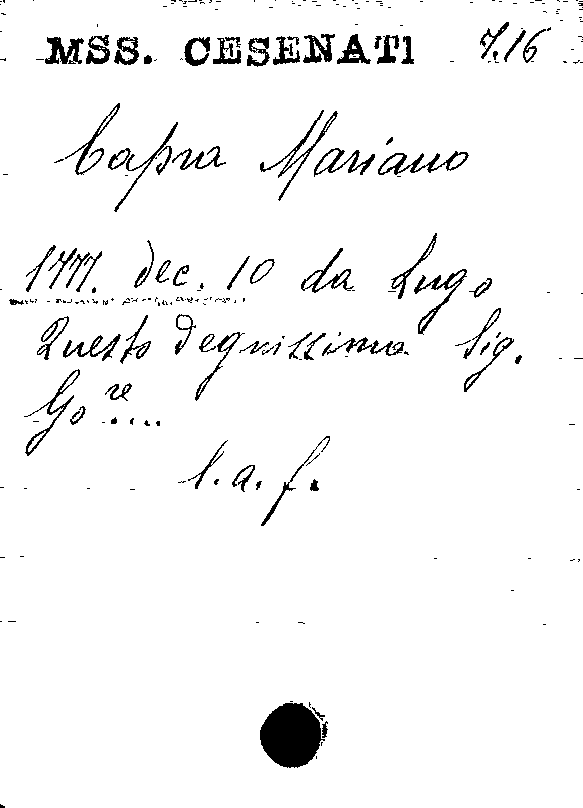 MSS. CESENATI 7.16
Capra Mariano
1777. dec. 10 da Lugo
Questo degnissimo Sig.
Go re....
l. a. f.